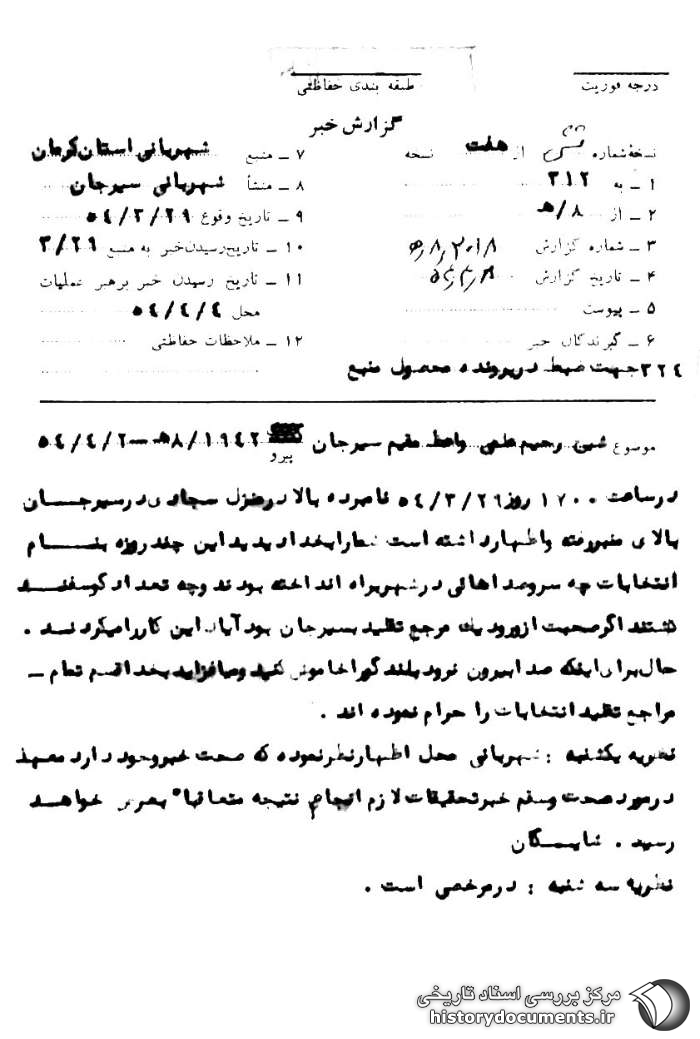 درجه فوریت
طبقه بندی حفاظتی
گزارش خبر
نسخه شماره از هفت نسخه
۱ ـ به ۳۱۲
۲ ـ از ۸/هـ
۳ ـ شماره گزارش
۴ ـ تاریخ گزارش
۵ ـ پیوست
۶ ـ گیرندگان خبر
۳۲۴ جهت ضبط در پرونده محصول منبع
۷ ـ منبع شهربانی استان کرمان
۸ ـ منشأ شهربانی سیرجان
۹ ـ تاریخ وقوع ۵۴/۳/۲۹
۱۰ ـ تاریخ رسیدن خبر به منبع ۳/۲۹
۱۱ ـ تاریخ رسیدن خبر برهبر عملیات
محل ۵۴/۴/۴
۱۲ ـ ملاحظات حفاظتی
موضوع شیخ رحیم واعظ مقیم سیرجان پیرو ۸/۱۹۴۲هـ ـ ۵۴/۴/۲
در ساعت ۱۷۰۰ روز ۵۴/۳/۲۶ نامبرده بالا در منزل سجادی در سیرجان
بالای منبر رفته و اظهار داشته است شما را بخدا دیدید این چند روزه بنام
انتخابات چه سر و صدا هائی در شهر براه انداخته بودند و چه تعداد گوسفند
کشتند اگر صحبت از ورود یک مرجع تقلید بسیرجان بود آیا این کار را میکردند .
حال برای اینکه صدا بیرون نرود بلند گو را خاموش کنید و میافزاید بخدا قسم تمام ـ
مراجع تقلید انتخابات را حرام نموده اند .
نظریه یکشنبه : شهربانی محل اظهار نظر نموده که صحت خبر وجود دارد معهذا
در مورد صحت و سقم خبر تحقیقات لازم انجام نتیجه متعاقبا" بعرض خواهد
رسید . شایسگان
نظریه سه شنبه : در مرخصی است .
مرکز بررسی اسناد تاریخی
historydocuments.ir